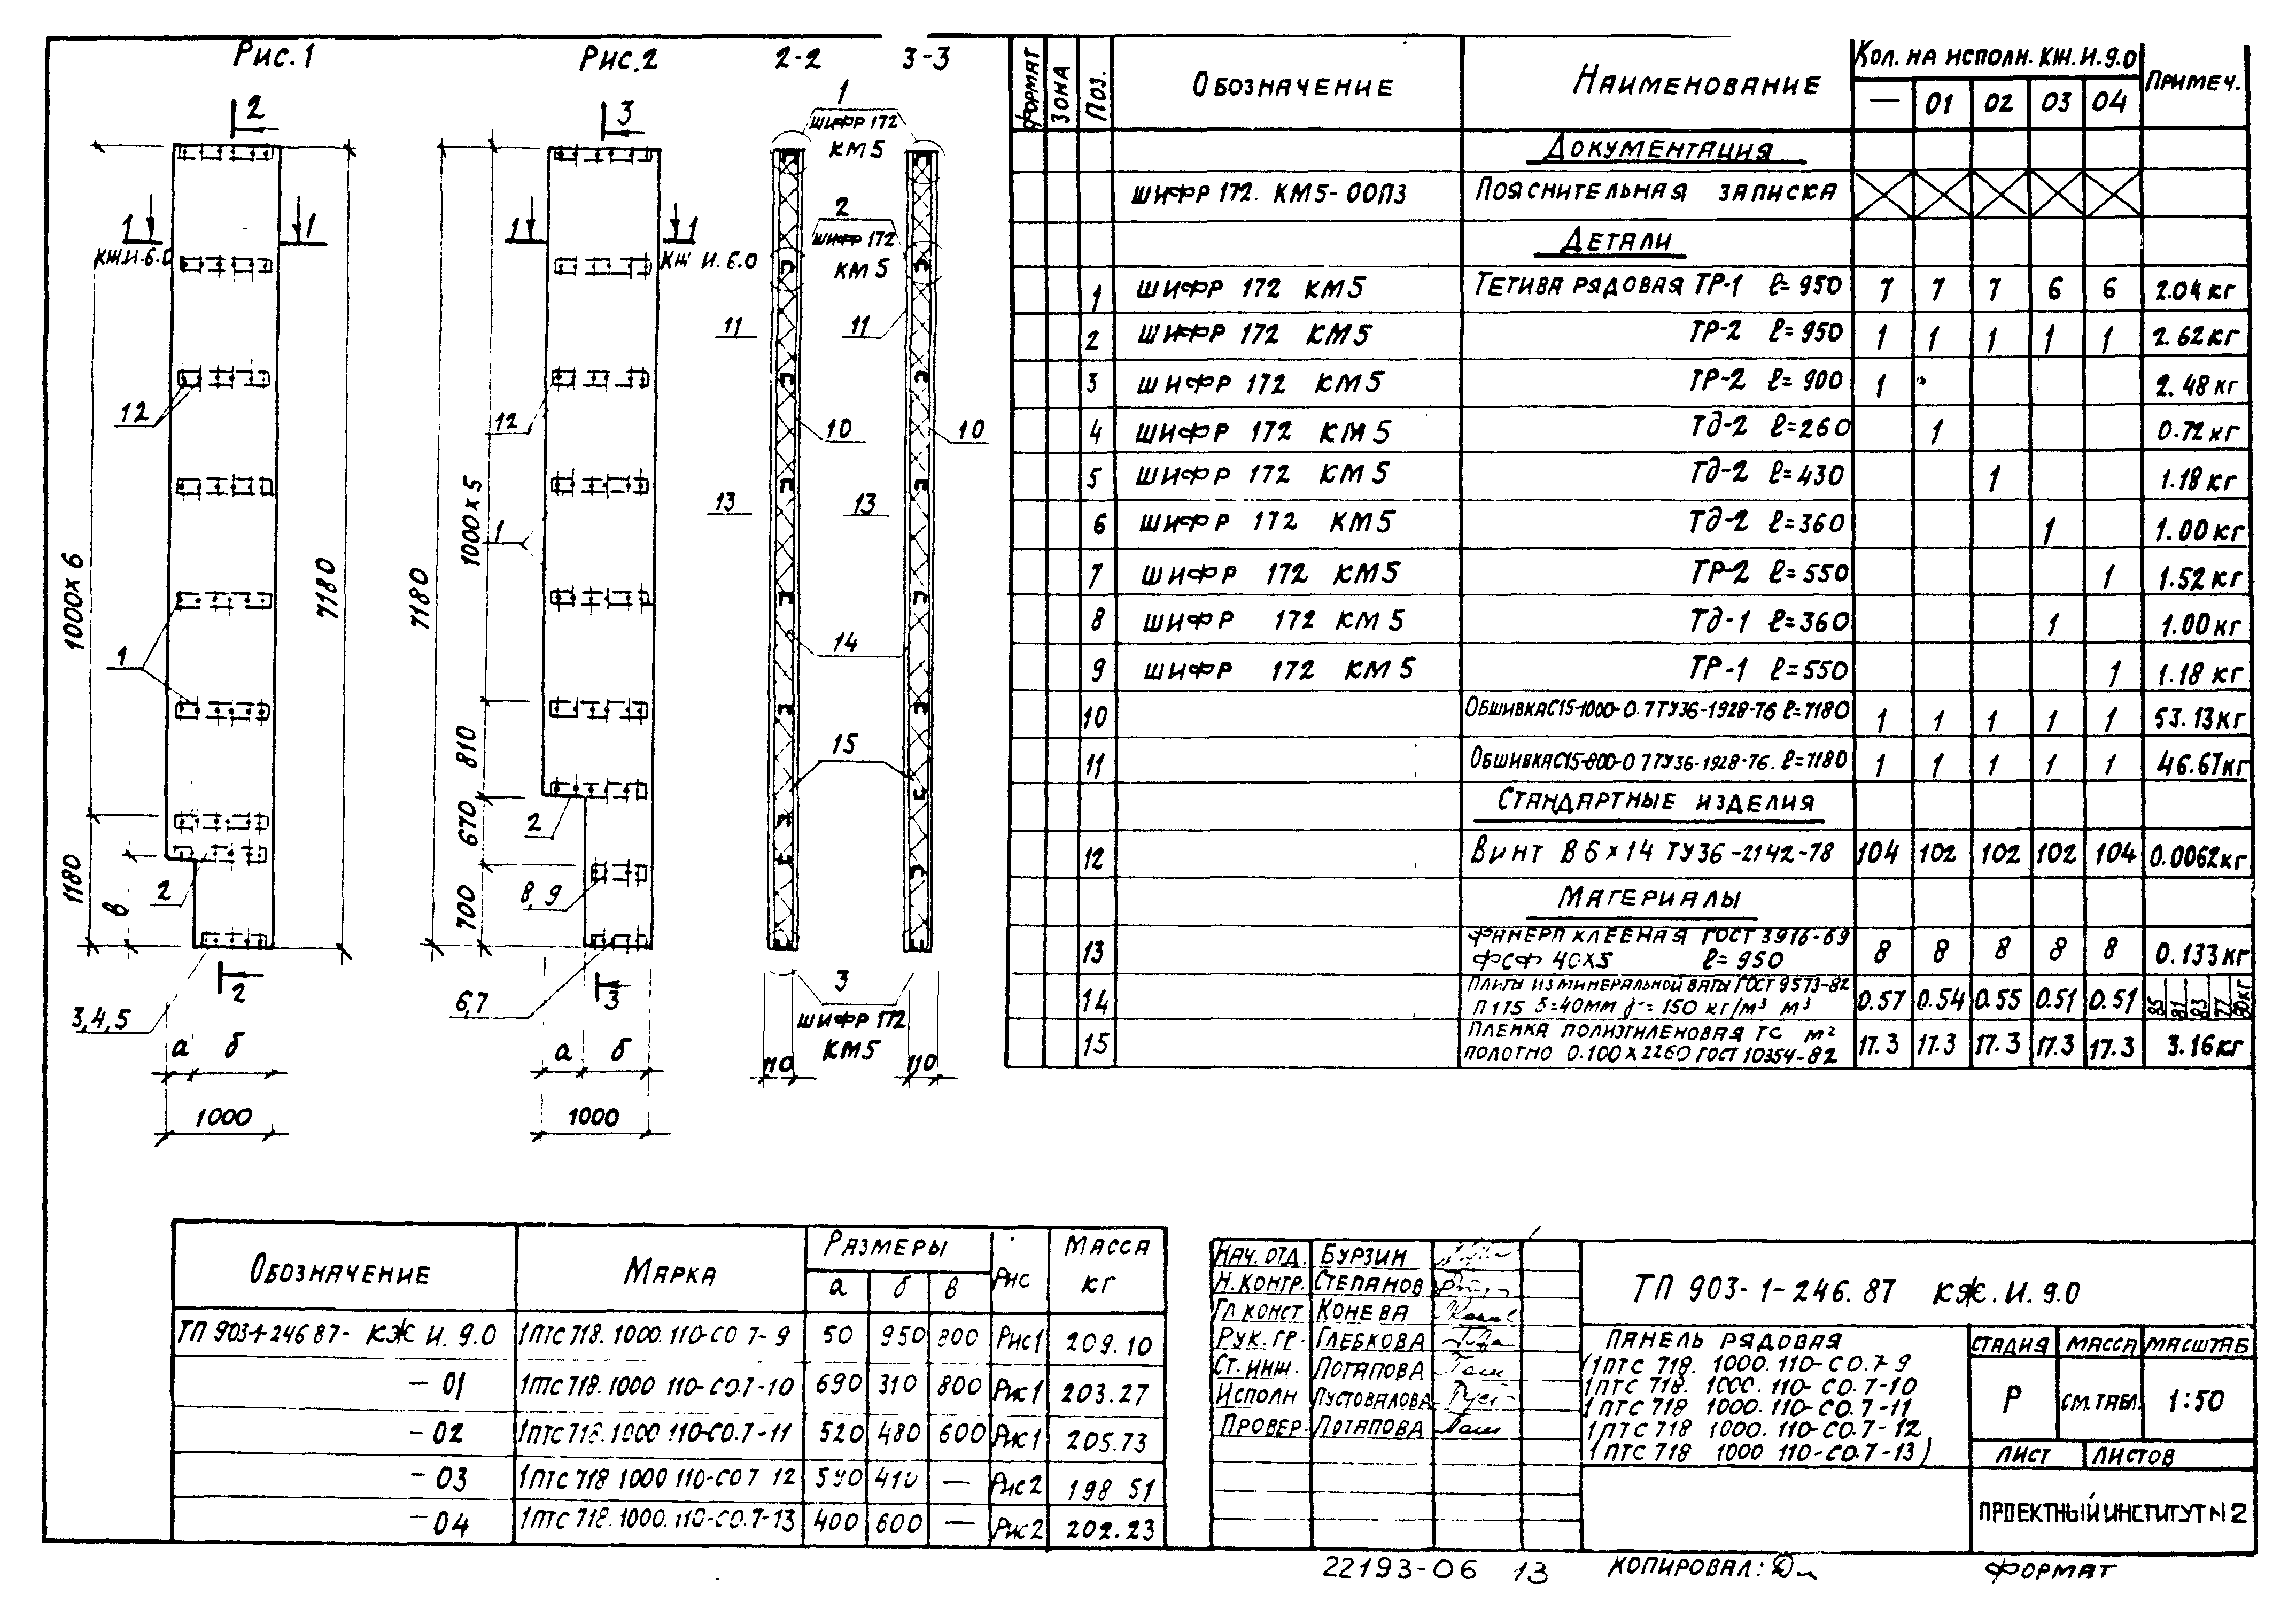 Рис.1
Рис.2
2-2
3-3
2
3
1
ШИФР 172
КМ5
2
ШИФР 172
КМ5
1
1
КЖ.И.6.0
1
1
КЖ И.6.0
11
11
12
12
10
10
13
13
1000×6
7180
7180
1000×5
1
1
14
15
810
670
700
2
2
1180
в
8,9
2
3
3,4,5
6,7
3
ШИФР 172
КМ5
а б
а б
110
110
1000
1000
ФОРМАТ ЗОНА ПОЗ. ОБОЗНАЧЕНИЕ НАИМЕНОВАНИЕ КОЛ. НА ИСПОЛН. КЖ.И.9.0 ПРИМЕЧ.
— 01 02 03 04
ДОКУМЕНТАЦИЯ
ШИФР 172. КМ5-00ПЗ ПОЯСНИТЕЛЬНАЯ ЗАПИСКА
ДЕТАЛИ
1 ШИФР 172 КМ5 ТЕТИВА РЯДОВАЯ ТР-1 ℓ=950 7 7 7 6 6 2.04кг
2 ШИФР 172 КМ5 ТР-2 ℓ=950 1 1 1 1 1 2.62кг
3 ШИФР 172 КМ5 ТР-2 ℓ=900 1 2.48кг
4 ШИФР 172 КМ5 Тд-2 ℓ=260 1 0.72кг
5 ШИФР 172 КМ5 Тд-2 ℓ=430 1 1.18кг
6 ШИФР 172 КМ5 Тд-2 ℓ=360 1 1.00кг
7 ШИФР 172 КМ5 ТР-2 ℓ=550 1 1.52кг
8 ШИФР 172 КМ5 Тд-1 ℓ=360 1 1.00кг
9 ШИФР 172 КМ5 ТР-1 ℓ=550 1 1.18кг
10 ОБШИВКА С15-1000-0.7 ТУ36-1928-76 ℓ=7180 1 1 1 1 1 53.13кг
11 ОБШИВКА С15-800-0 7 ТУ36-1928-76. ℓ=7180 1 1 1 1 1 46.67кг
СТАНДАРТНЫЕ ИЗДЕЛИЯ
12 ВИНТ В6×14 ТУ36-2142-78 104 102 102 102 104 0.0062кг
МАТЕРИАЛЫ
13 ФАНЕРА КЛЕЕНАЯ ГОСТ 3916-69
ФСФ 40×5 ℓ=950 8 8 8 8 8 0.133кг
14 ПЛИТЫ ИЗ МИНЕРАЛЬНОЙ ВАТЫ ГОСТ 9573-82
П175 δ=40мм γ=150 кг/м³ м³ 0.57 0.54 0.55 0.51 0.51 85 81 83 77 80кг
15 ПЛЕНКА ПОЛИЭТИЛЕНОВАЯ ТС м²
ПОЛОТНО 0.100×2260 ГОСТ 10354-82 17.3 17.3 17.3 17.3 17.3 3.16кг
ОБОЗНАЧЕНИЕ МАРКА РАЗМЕРЫ Рис МАССА
а б в кг
ТП 903-1-246 87- КЖ И. 9.0 1ПТС 718.1000.110-С0 7-9 50 950 800 Рис1 209.10
-01 1ПТС 718.1000 110-С0.7-10 690 310 800 Рис1 203.27
-02 1ПТС 718.1000 110-С0.7-11 520 480 600 Рис1 205.73
-03 1ПТС 718 1000 110-С0 7 12 590 410 — Рис2 198 51
-04 1ПТС 718.1000.110-С0.7-13 400 600 — Рис2 202.23
НАЧ. ОТД. БУРЗИН
Н.КОНТР. СТЕПАНОВ
ГЛ КОНСТ КОНЕВА
РУК.ГР. ГЛЕБКОВА
СТ.ИНЖ. ПОТАПОВА
ИСПОЛН ПУСТОВАЛОВА
ПРОВЕР. ПОТАПОВА
ТП 903-1-246.87 КЖ.И.9.0
ПАНЕЛЬ РЯДОВАЯ
(1ПТС 718. 1000.110-С0.7-9
1ПТС 718. 1000.110-С0.7-10
1ПТС 718 1000.110-С0.7-11
1ПТС 718 1000.110-С0.7-12
1ПТС 718 1000 110-С0.7-13)
СТАДИЯ МАССА МАСШТАБ
Р СМ.ТАБЛ. 1:50
ЛИСТ ЛИСТОВ
ПРОЕКТНЫЙ ИНСТИТУТ №2
22193-06 13
КОПИРОВАЛ:
ФОРМАТ